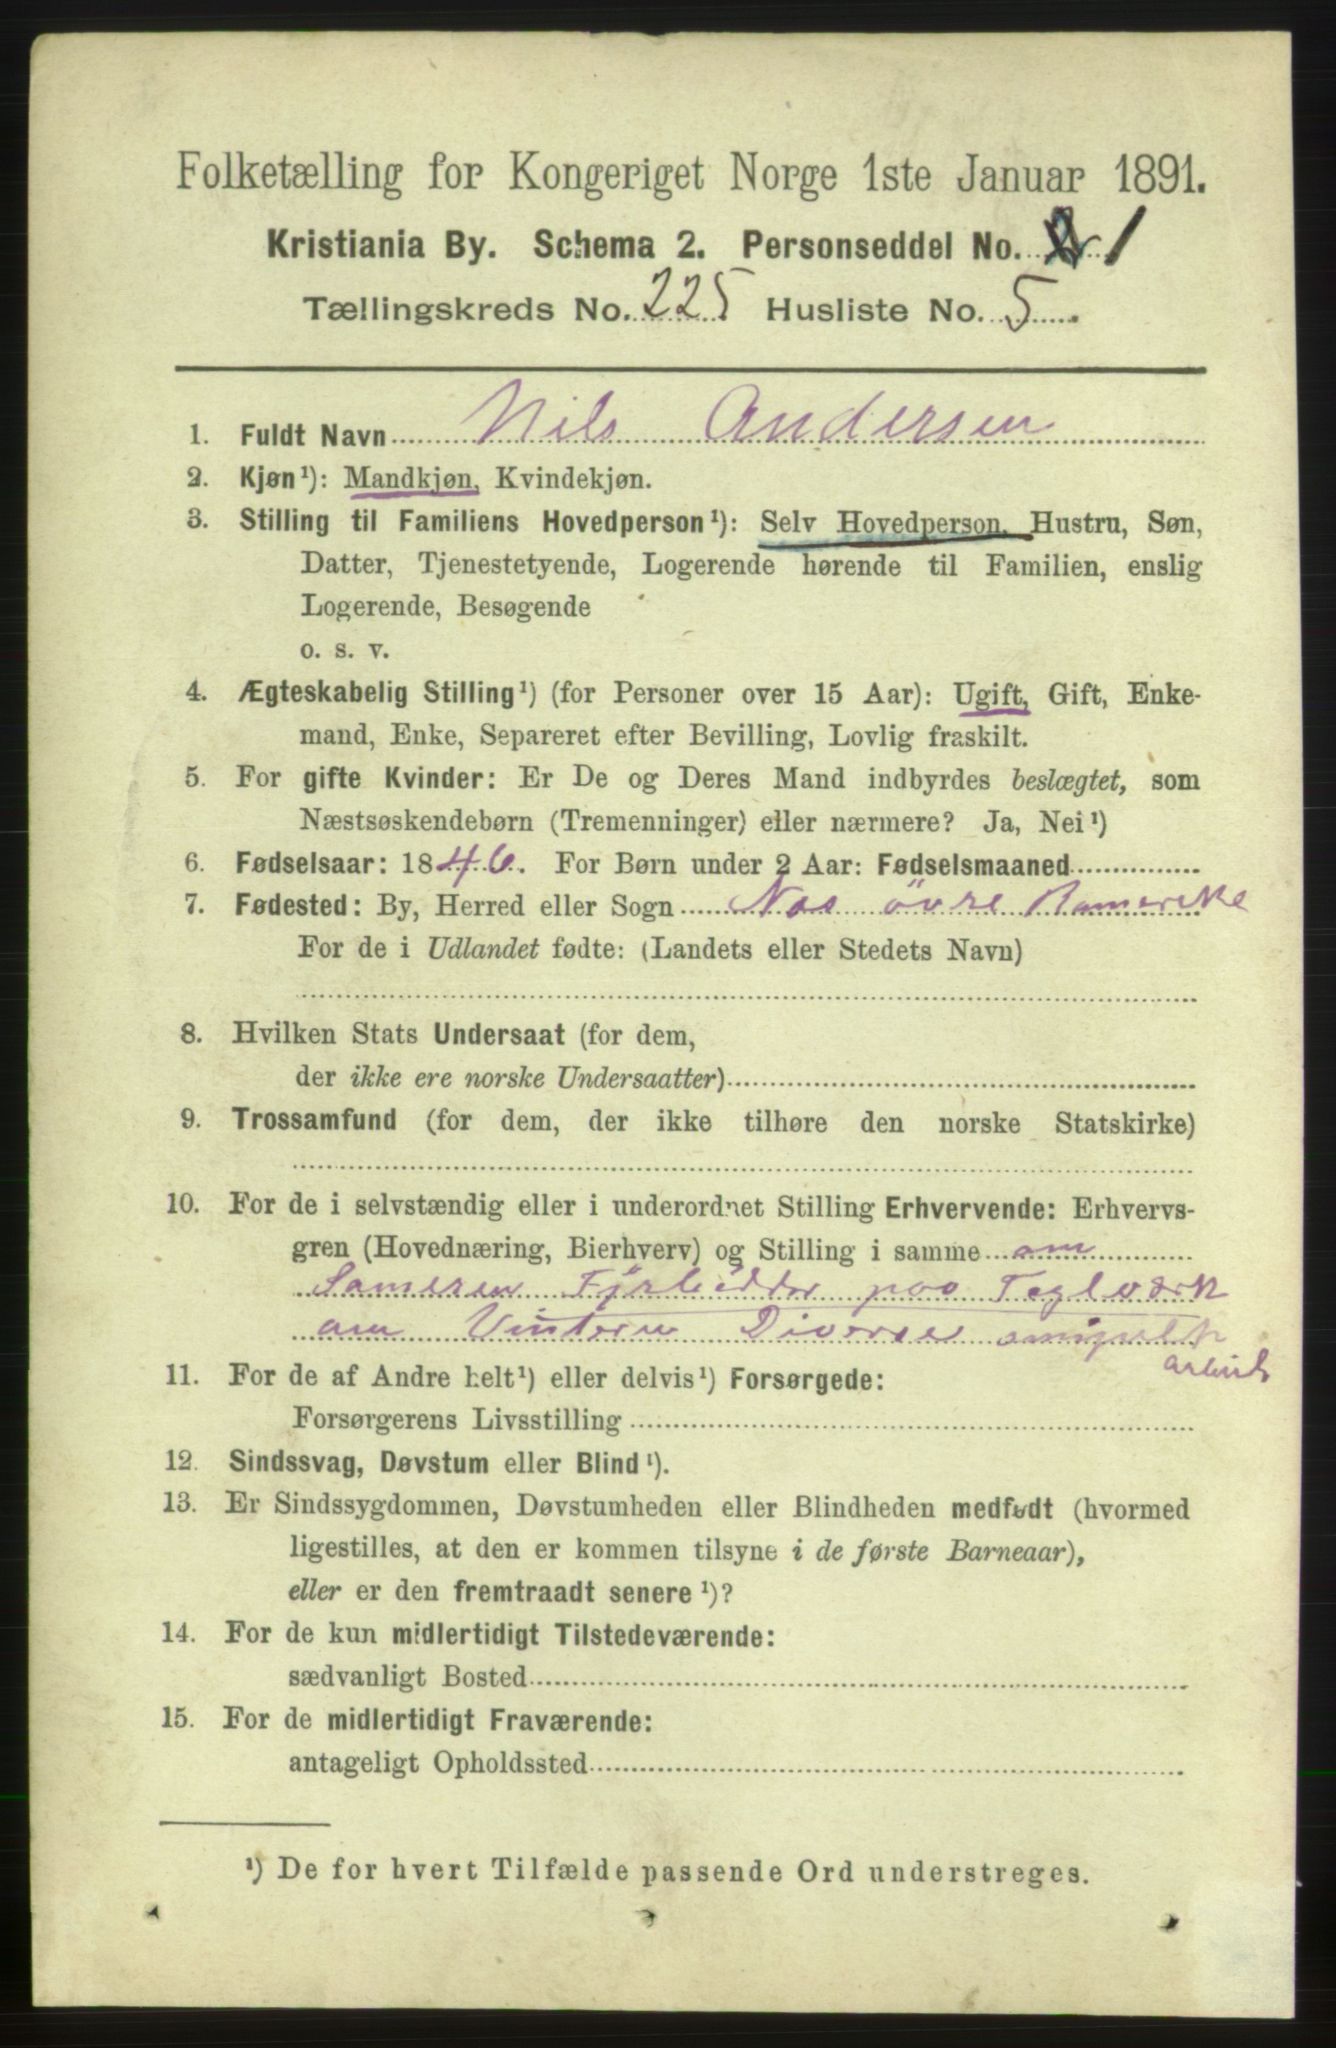 Folketælling for Kongeriget Norge 1ste Januar 1891.
Kristiania By. Schema 2. Personseddel No. 1
Tællingskreds No. 225 Husliste No. 5
1. Fuldt Navn Nils Andersen
2. Kjøn¹): Mandkjøn, Kvindekjøn.
3. Stilling til Familiens Hovedperson¹): Selv Hovedperson, Hustru, Søn,
Datter, Tjenestetyende, Logerende hørende til Familien, enslig
Logerende, Besøgende
o. s. v.
4. Ægteskabelig Stilling¹) (for Personer over 15 Aar): Ugift, Gift, Enke-
mand, Enke, Separeret efter Bevilling, Lovlig fraskilt.
5. For gifte Kvinder: Er De og Deres Mand indbyrdes beslægtet, som
Næstsøskendebørn (Tremenninger) eller nærmere? Ja, Nei¹)
6. Fødselsaar: 1846. For Børn under 2 Aar: Fødselsmaaned
7. Fødested: By, Herred eller Sogn Nas övre Romerike
For de i Udlandet fødte: (Landets eller Stedets Navn)
8. Hvilken Stats Undersaat (for dem,
der ikke ere norske Undersaatter)
9. Trossamfund (for dem, der ikke tilhøre den norske Statskirke)
10. For de i selvstændig eller i underordnet Stilling Erhvervende: Erhvervs-
gren (Hovednæring, Bierhverv) og Stilling i samme om
Someren Fyrbödder paa Teglværk
om Vinteren Diverse
arbeid
11. For de af Andre helt¹) eller delvis¹) Forsørgede:
Forsørgerens Livsstilling
12. Sindssvag, Døvstum eller Blind¹).
13. Er Sindssygdommen, Døvstumheden eller Blindheden medfødt (hvormed
ligestilles, at den er kommen tilsyne i de første Barneaar),
eller er den fremtraadt senere¹)?
14. For de kun midlertidigt Tilstedeværende:
sædvanligt Bosted
15. For de midlertidigt Fraværende:
antageligt Opholdssted
¹) De for hvert Tilfælde passende Ord understreges.